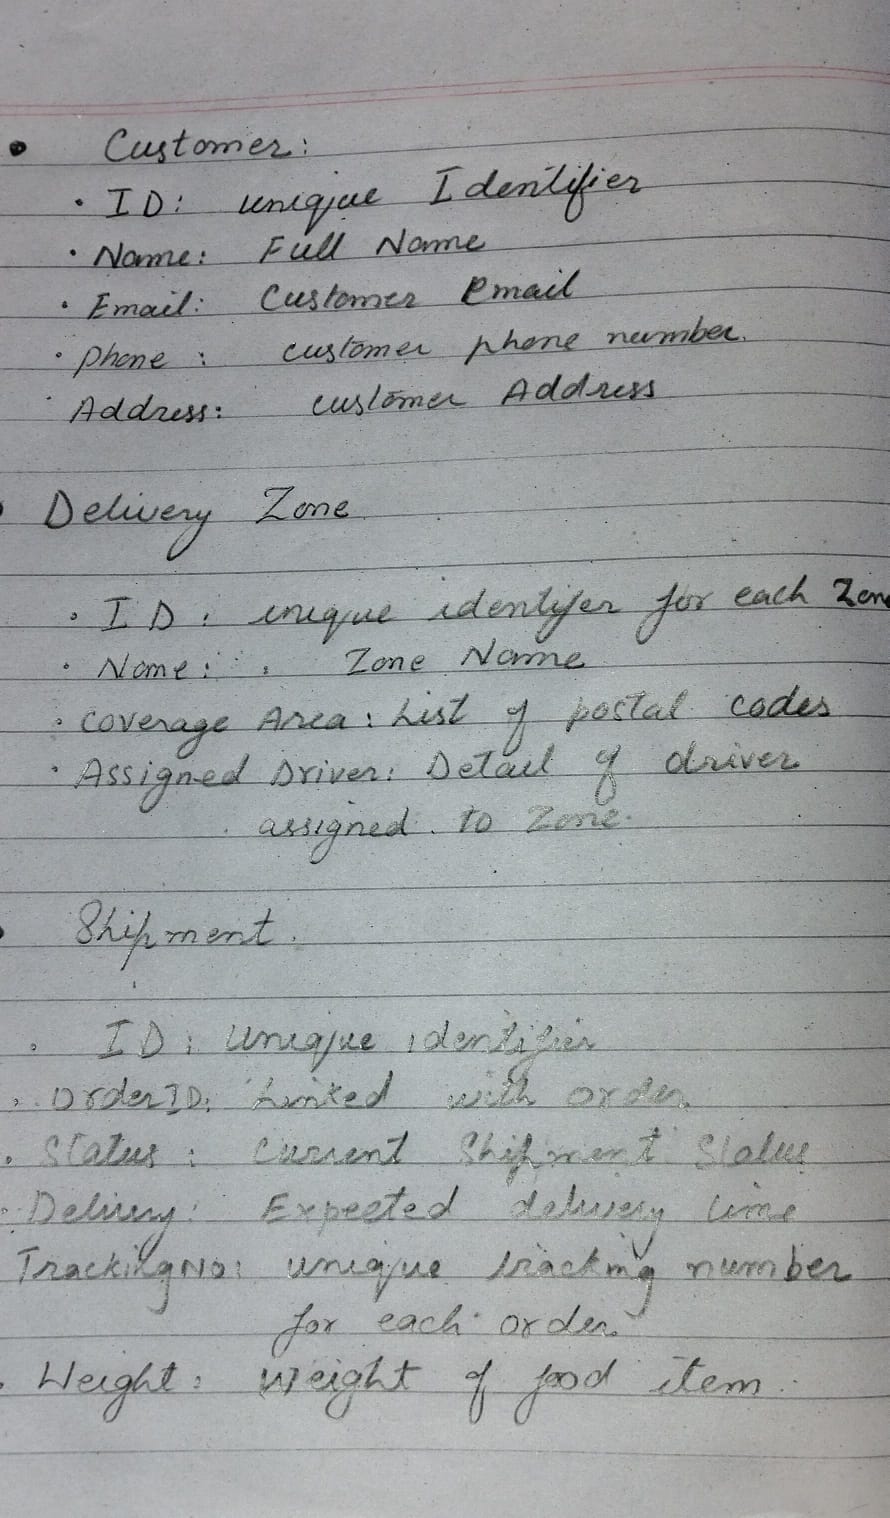 • Customer:
• ID: unique Identifier
• Name: Full Name
• Email: Customer email
• Phone : customer phone number.
• Address: customer Address
• Delivery Zone
• ID : unique identifer for each Zone
• Name: : Zone Name
• Coverage Area: List of postal codes
• Assigned Driver: Detail of driver
assigned to Zone.
• Shipment.
• ID : Unique identifier
• OrderID: Linked with order.
• Status : Current Shipment Status
• Delivery: Expected delivery time
TrackingNo: unique tracking number
for each order.
• Weight: Weight of food item.